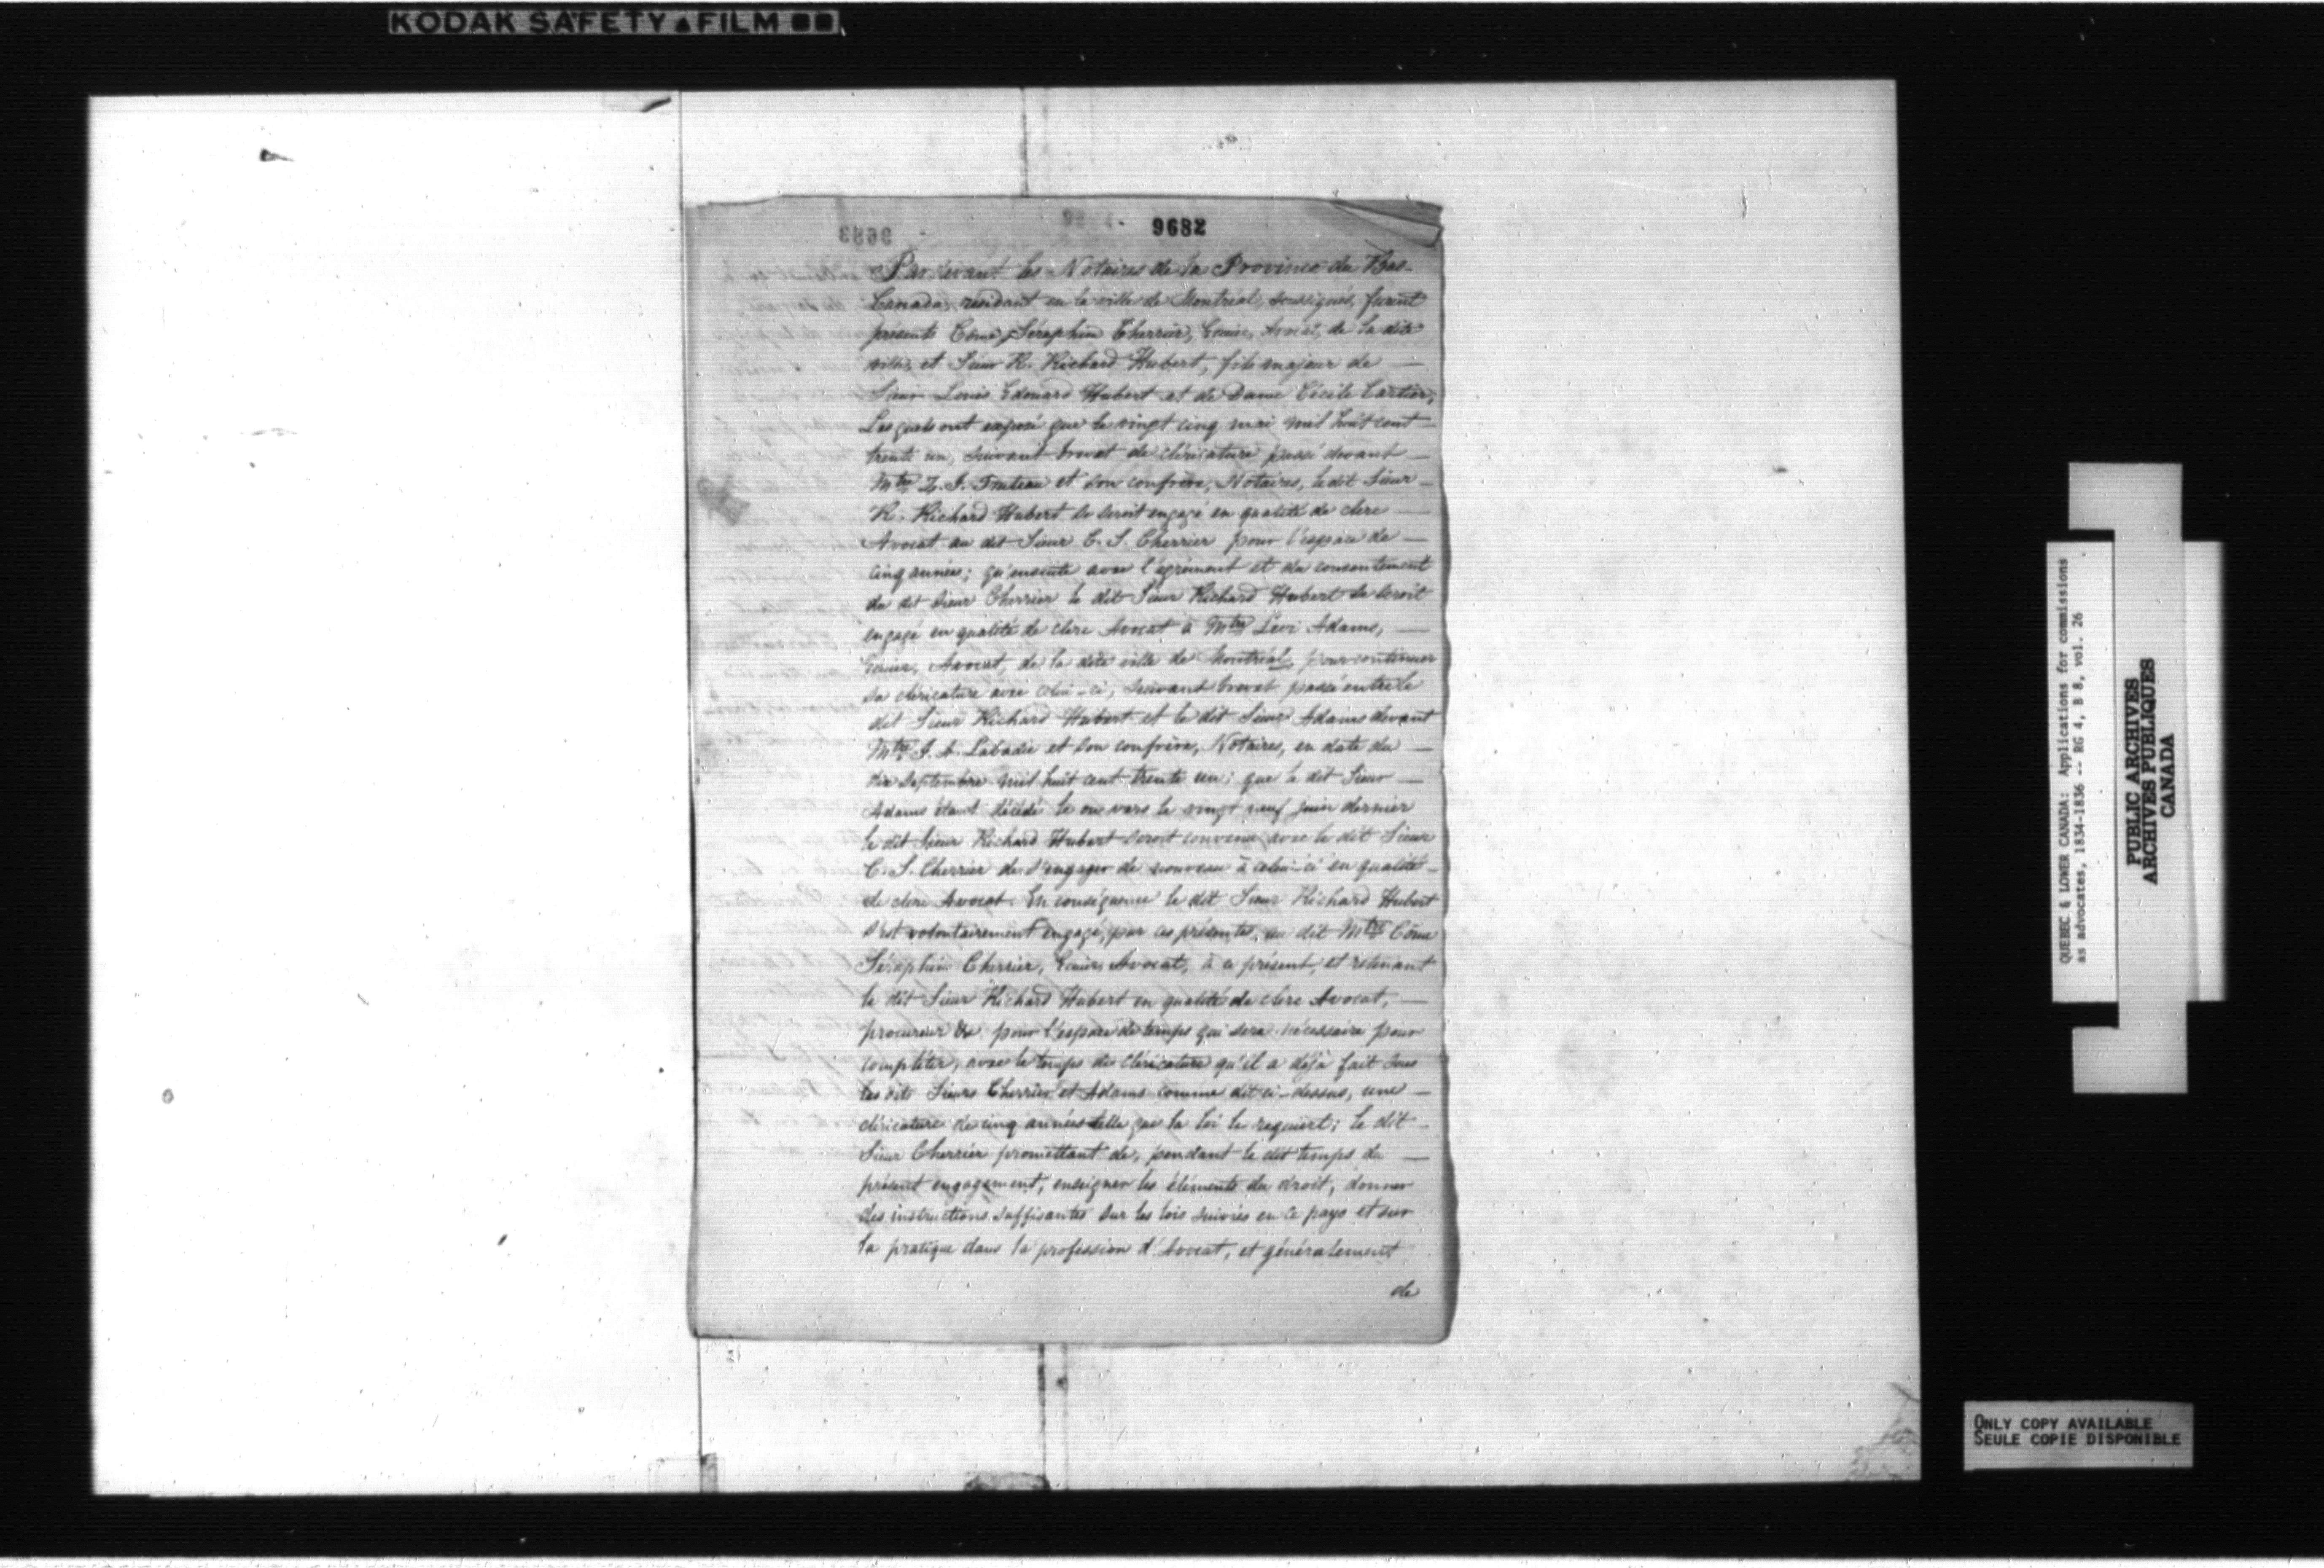 KODAK SAFETY FILM
9683
9682
Pardevant les Notaires de la Province du Bas-
Canada, residant en la ville de Montréal, soussignés, furent
présents Côme Séraphin Cherrier, Ecuier, Avocat, de la dite
ville, et Sieur R. Richard Hubert, fils majeur de —
Sieur Louis Edouard Hubert et de Dame Cécile Cartier,
Lesquels ont exposé que le vingt cinq mai mil huit cent —
trente un, suivant brevet de cléricature passé devant —
Mtre Z. J. Truteau et son confrère, Notaires, le dit Sieur —
R. Richard Hubert se seroit engagé en qualité de clerc —
Avocat au dit Sieur C. S. Cherrier pour l'espace de —
cinq années; qu'ensuite avec l'agrément et du consentement
du dit Sieur Cherrier le dit Sieur Richard Hubert se seroit
engagé en qualité de clerc Avocat à Mtre Levi Adams, —
Ecuier, Avocat, de la dite ville de Montréal, pour continuer
sa cléricature avec celui-ci, suivant brevet passé entre le
dit Sieur Richard Hubert et le dit Sieur Adams devant
Mtre J. A. Labadie et son confrère, Notaires, en date du —
dix septembre mil huit cent trente un; que le dit Sieur —
Adams étant décédé le ou vers le vingt neuf juin dernier
le dit Sieur Richard Hubert seroit convenu avec le dit Sieur
C. S. Cherrier de s'engager de nouveau à celui-ci en qualité —
de clerc Avocat. En conséquence le dit Sieur Richard Hubert
s'est volontairement engagé, par ces présentes, au dit Mtre Côme
Séraphin Cherrier, Ecuier, Avocat, à ce présent, et retenant
le dit Sieur Richard Hubert en qualité de clerc Avocat, —
procureur &c. pour l'espace de temps qui sera nécessaire pour
compléter, avec le temps de cléricature qu'il a déjà fait sous
les dits Sieurs Cherrier et Adams comme dit ci-dessus, une —
cléricature de cinq années telle que la loi le requiert; le dit —
Sieur Cherrier promettant de, pendant le dit temps du —
présent engagement, enseigner les éléments du droit, donner
des instructions suffisantes sur les lois suivies en ce pays et sur
la pratique dans la profession d'Avocat, et généralement
de
QUEBEC & LOWER CANADA: Applications for commissions
as advocates, 1834-1836 -- RG 4, B 8, vol. 26
PUBLIC ARCHIVES
ARCHIVES PUBLIQUES
CANADA
ONLY COPY AVAILABLE
SEULE COPIE DISPONIBLE